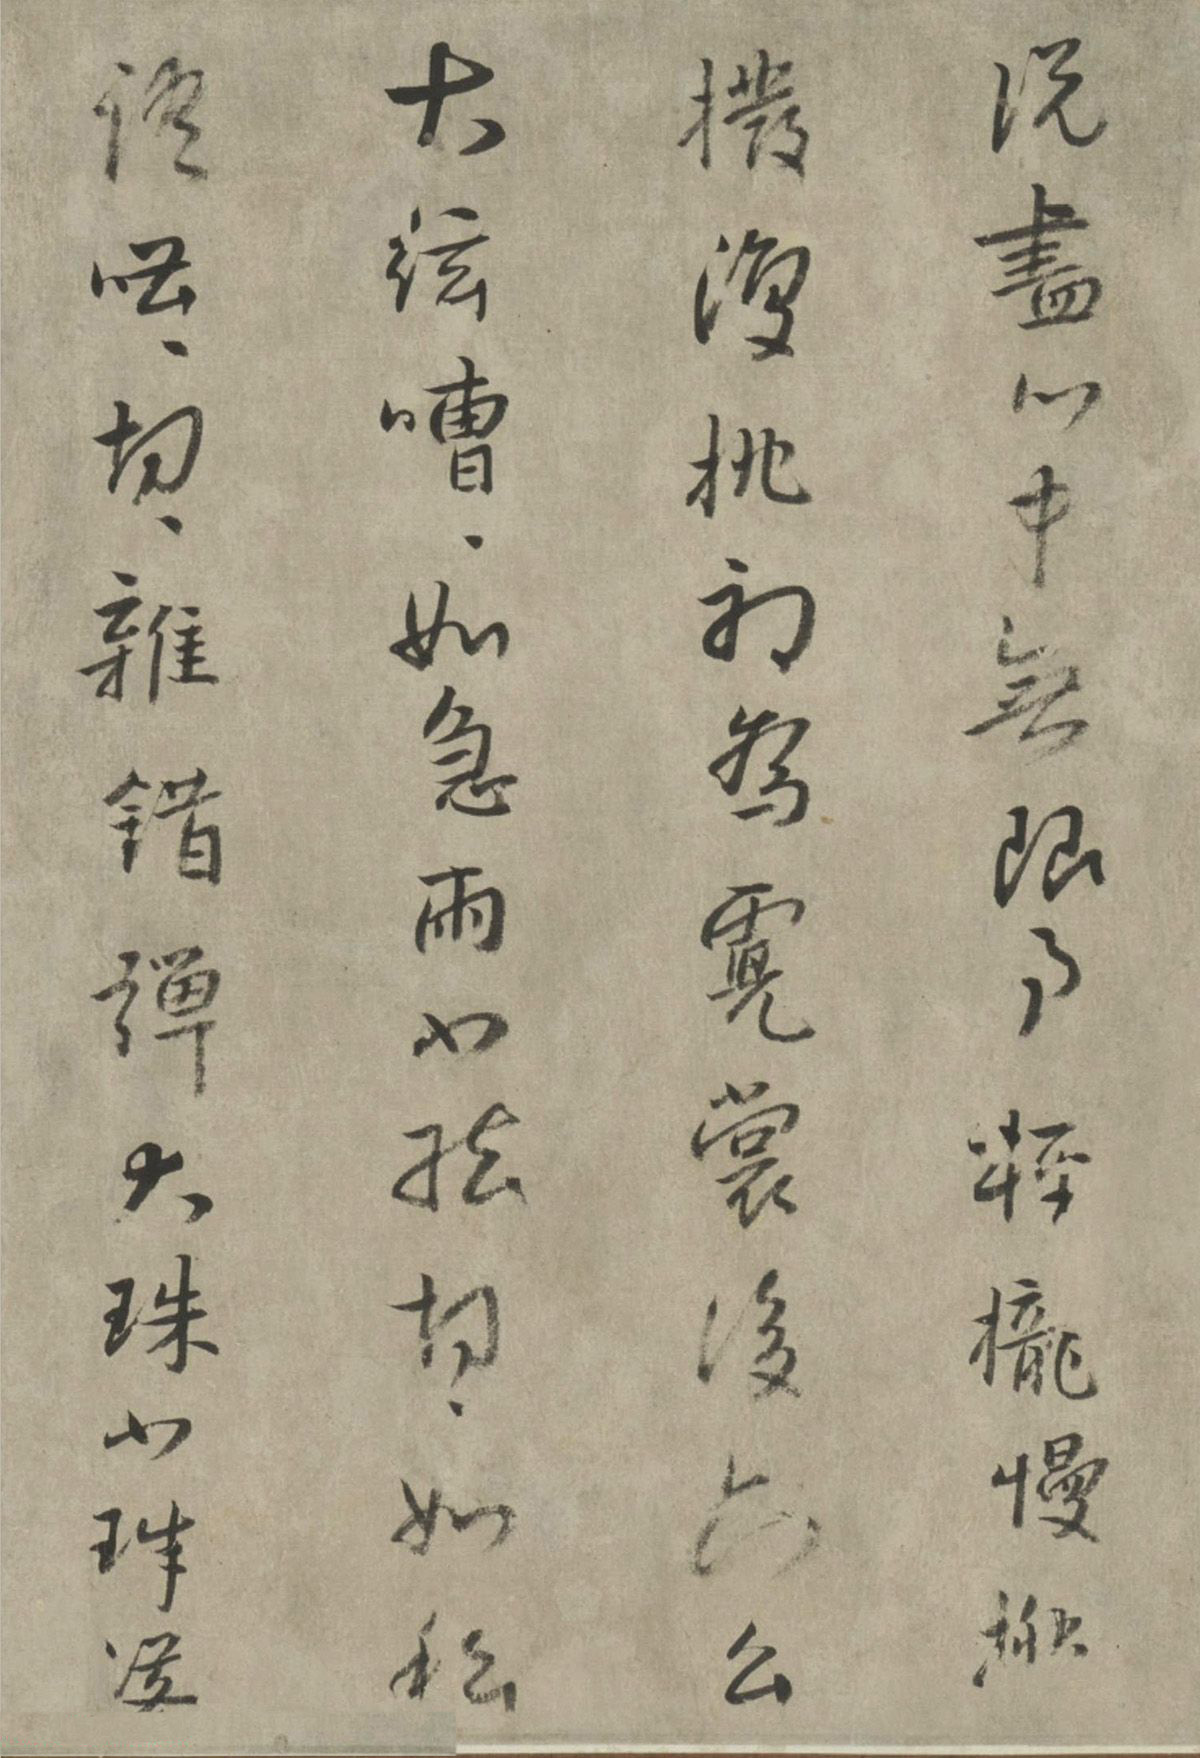 說盡心中無限事輕攏慢撚
撥復挑初為霓裳後六么
大絃嘈、如急雨小絃切、如私
語嘈、切、雜錯彈大珠小珠落